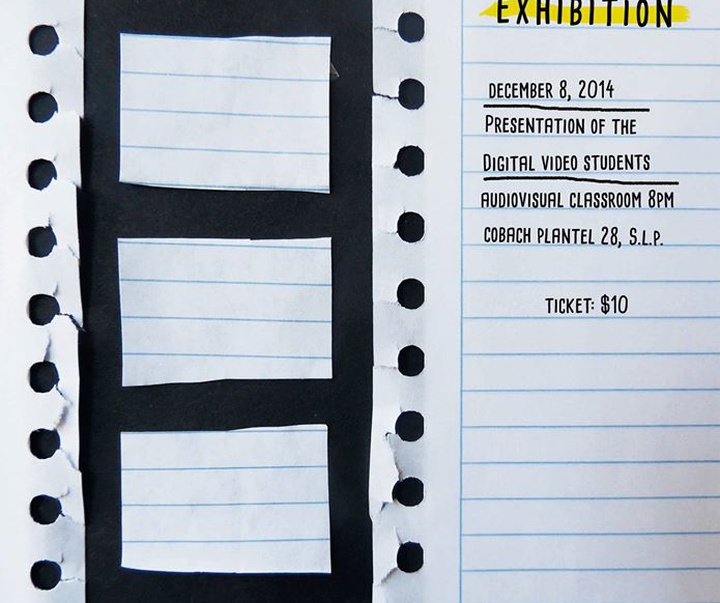 EXHIBITION
DECEMBER 8, 2014
PRESENTATION OF THE
DIGITAL VIDEO STUDENTS
AUDIOVISUAL CLASSROOM 8PM
COBACH PLANTEL 28, S.L.P.
TICKET: $10